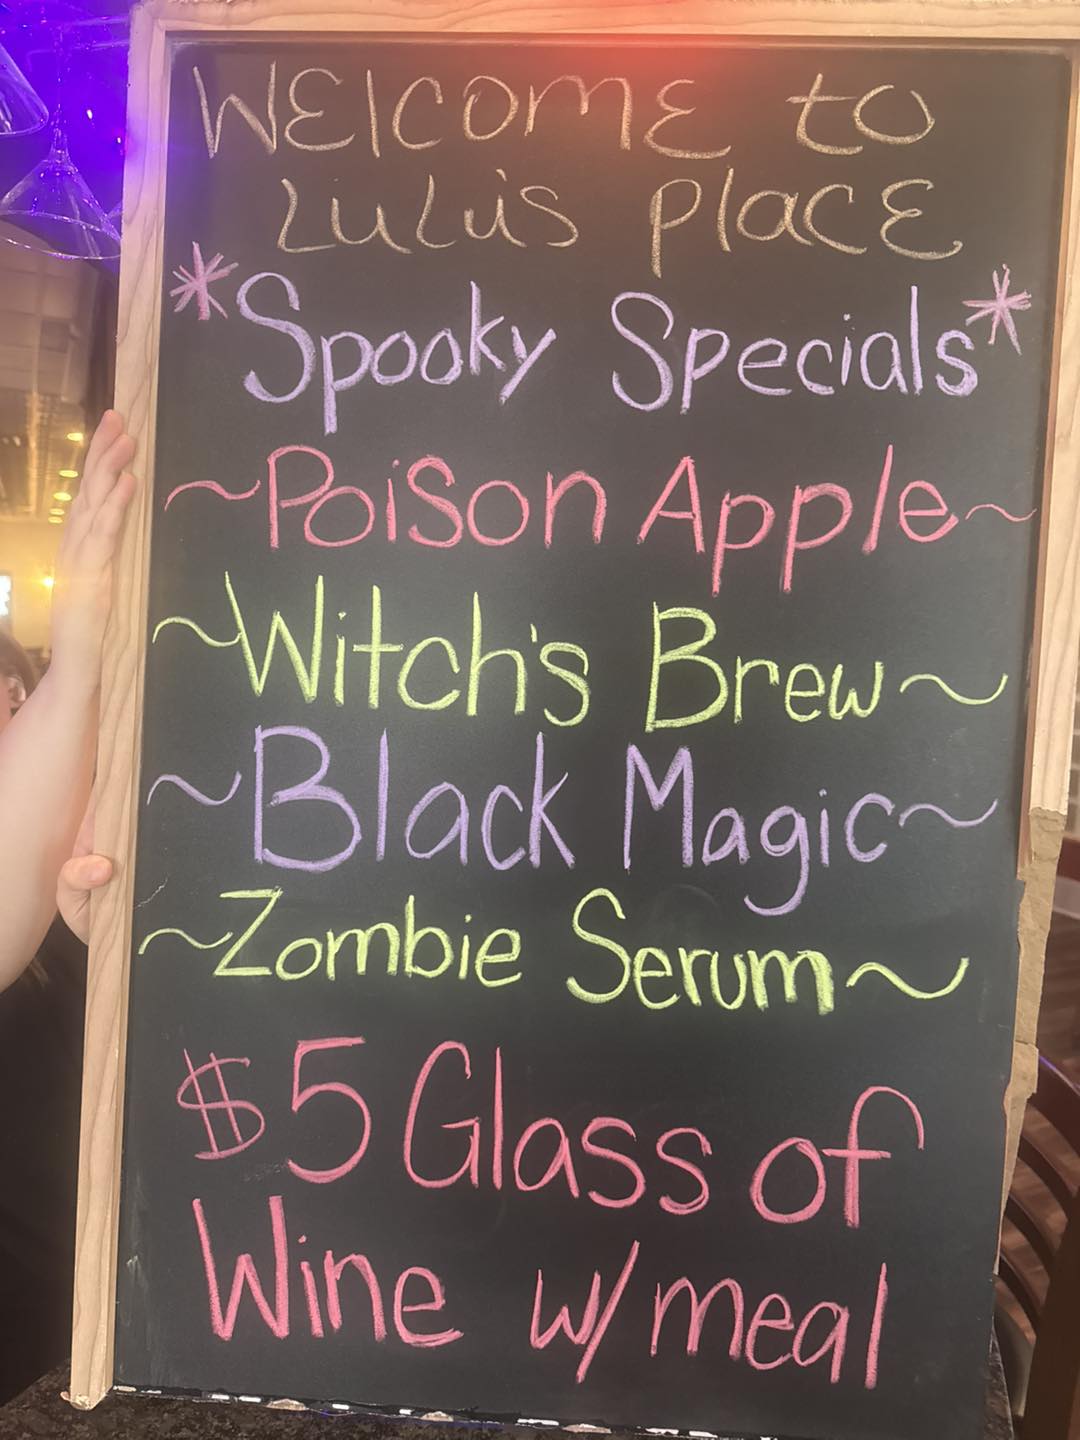 WElcomE to
LuLu's PlacE
*Spooky Specials*
~Poison Apple~
~Witch's Brew~
~Black Magic~
~Zombie Serum~
$5 Glass of
Wine w/ meal